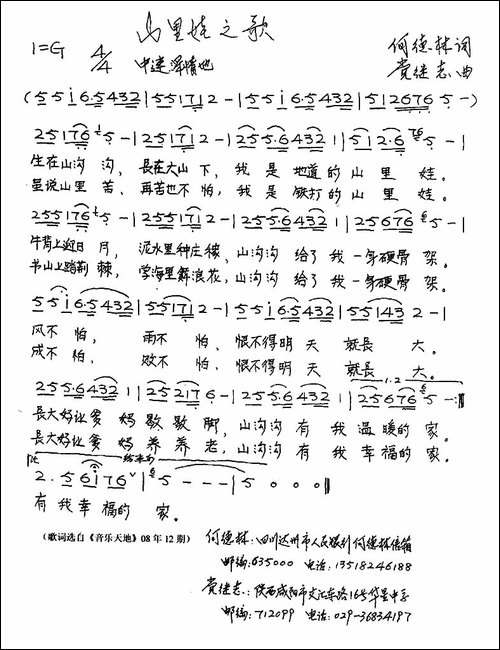 山里娃之歌
1=G 4/4 中速 深情地 何德林词
黄继志 曲
(5 5 i 6·5 4 3 2 | 5 5 1 7 1 2 - | 5 5 i 6·5 4 3 2 | 5 1 2 6 7 6 5 -)
2 5 1 7 6 5 - | 2 5 1 7 1 2 - | 2 5 5·6 4 3 2 1 | 5 1 2·6 5 - |
生在山沟 沟, 长在大山 下, 我 是 地道的 山 里 娃。
虽说山里 苦, 再苦也不 怕, 我 是 铁打的 山 里 娃。
2 5 5 1 7 6 5 - | 2 5 5 1 7 1 2 - | 2 5 5·6 4 3 2 1 | 2 5 6 7 6 5 - |
牛背上迎日 月, 泥水里种庄稼, 山沟沟 给了 我 一身硬骨 架。
书山上踏荆 棘, 学海里翻浪花, 山沟沟 给了 我 一身硬骨 架。
5 5 i 6·5 4 3 2 | 5 5 1 7 1 2 - | 5 5 i 6·5 4 3 2 | 5 5 1 4 3 2 - |
风不 怕, 雨不 怕, 恨不得明 天 就长 大。
成不 怕, 败不 怕, 恨不得明 天 就长 大。
2 5 5·6 4 3 2 1 | 2 5 2 1 7 6 - | 2 5 5·6 4 3 2 1 | 2 5 6 7 6 5 - :‖
1.2.
长大好让爹 妈 歇 歇 脚, 山沟沟 有 我 温暖的 家。
长大好让爹 妈 养 养 老, 山沟沟 有 我 幸福的 家。
结束句
2. 5 6 i 7 6 | 5 - - - | 5 0 0 0 ‖
有 我 幸 福的 家。
(歌词选自《音乐天地》08年12期) 何德林:四川达州市人民银行何德林信箱
邮编:635000 电话:13518246188
黄继志:陕西咸阳市文汇东路16号华星中东
邮编:712099 电话:029-36834197